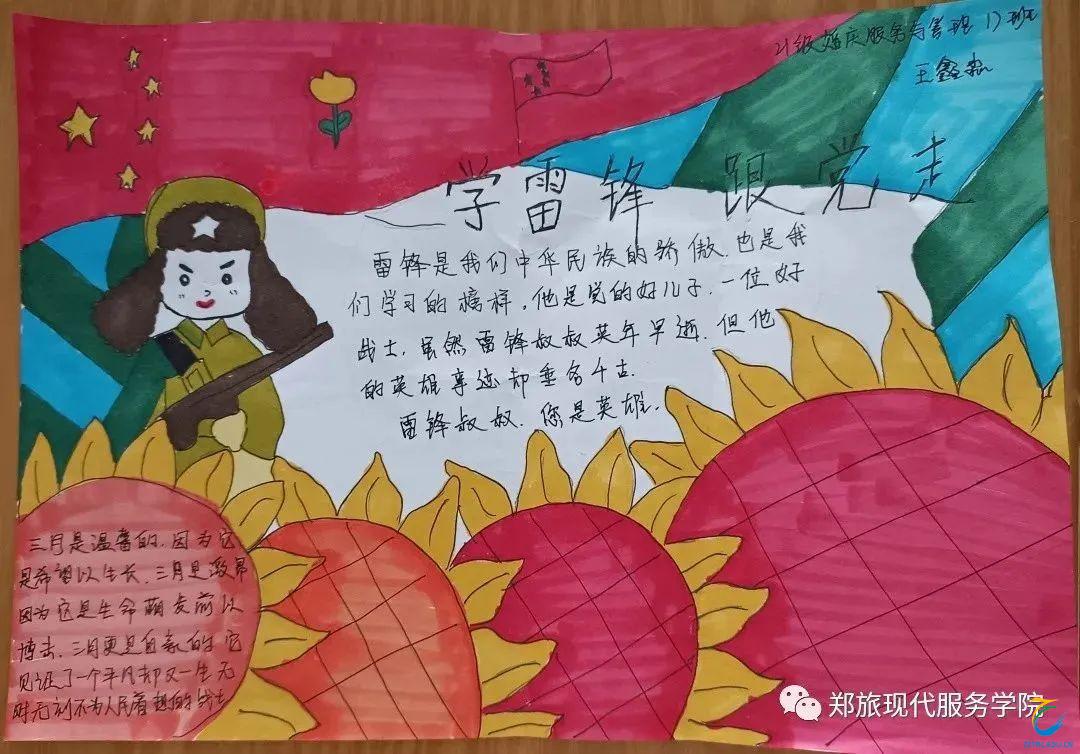 21级婚庆服务与管理 1班
王鑫淼
学雷锋 跟党走
雷锋是我们中华民族的骄傲.也是我
们学习的榜样,他是党的好儿子.一位好
战士.虽然雷锋叔叔英年早逝.但他
的英雄事迹却垂名千古.
雷锋叔叔.您是英雄.
三月是温馨的.因为它
是希望以生长.三月是激昂
因为它是生命萌发前以
搏击.三月更是自豪的它
见证了一个平凡却又一生无
时无刻不为人民着想的战士
郑旅现代服务学院